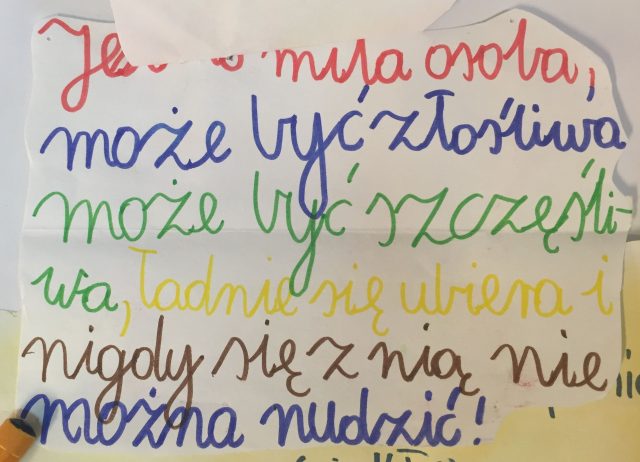 miła osoba,
może być złośliwa
może być szczęśli-
wa, ładnie się ubiera i
nigdy się z nią nie
można nudzić!